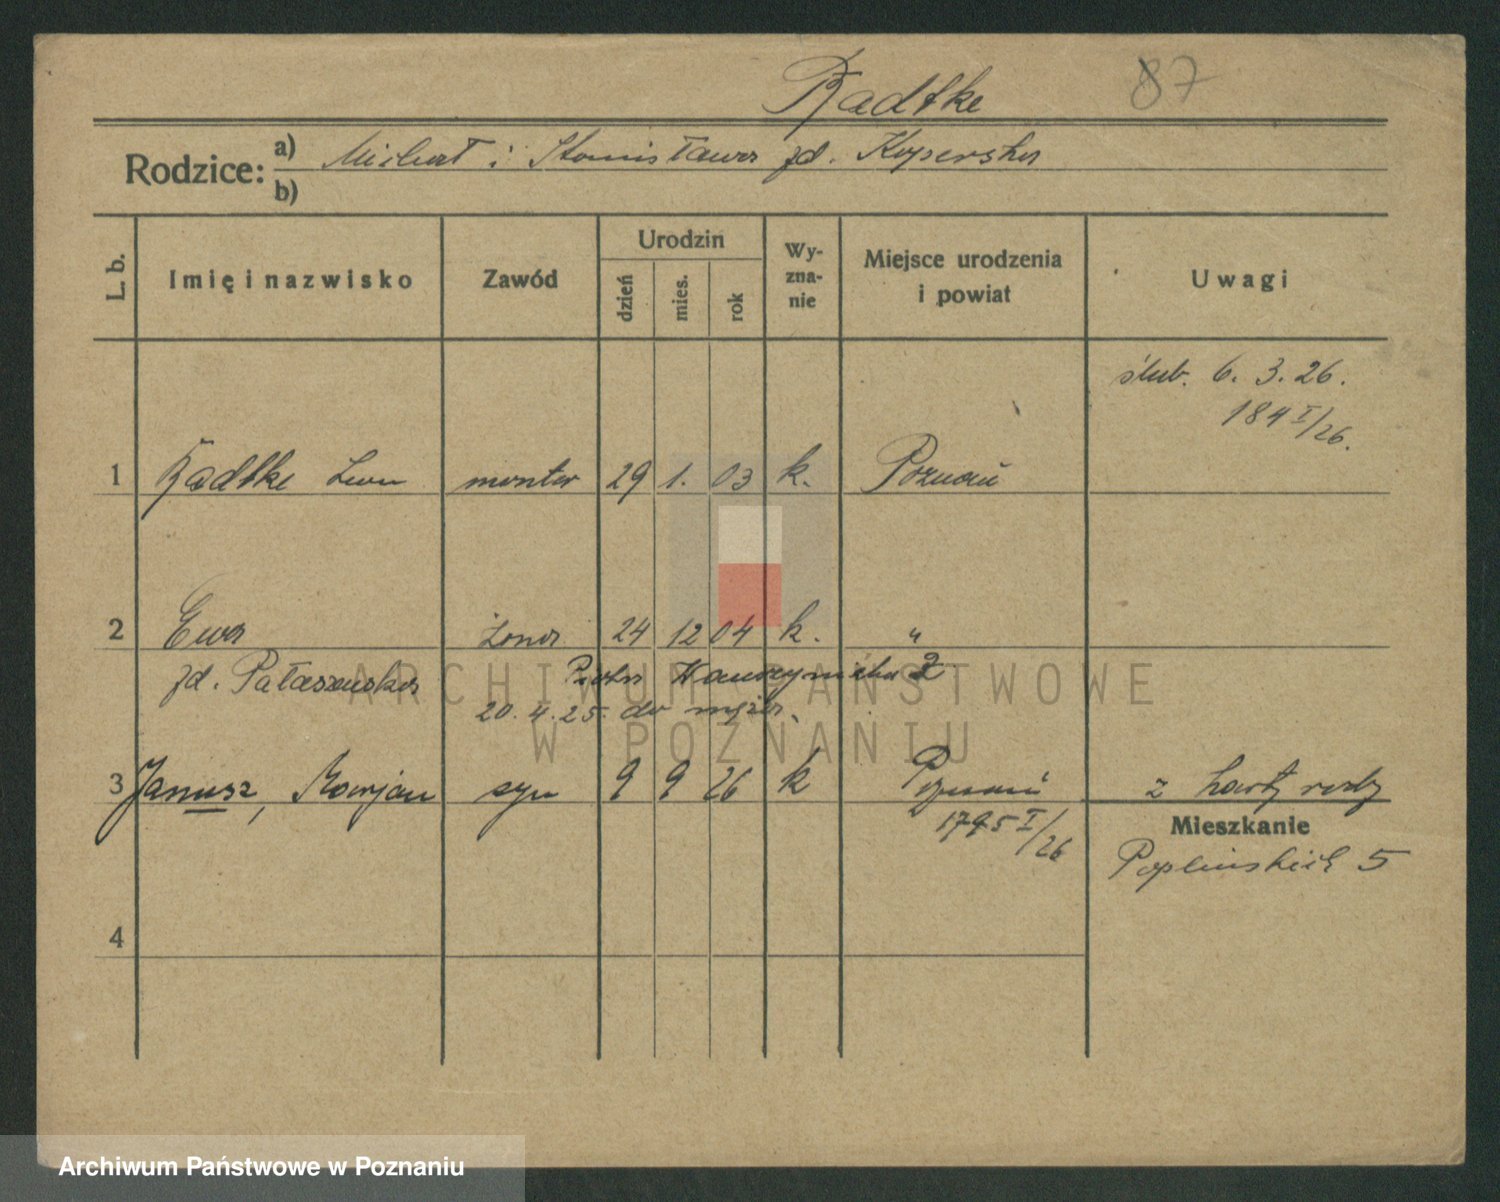 Radtke 87
Rodzice: a) Michał i Stanisława zd. Koperska
b)
L. b. Imię i nazwisko Zawód Urodzin dzień mies. rok Wyznanie Miejsce urodzenia i powiat Uwagi
ślub. 6. 3. 26.
184 I/26.
1 Radtke Leon monter 29 1. 03 k. Poznań
2 Ewa żona 24 12 04 k. "
zd. Pałaszewska Piotra Wawrzyniaka 2
20. 4. 25. do męża
3 Janusz, Marjan syn 9 9 26 k Poznań z karty rodz
1795 I/26
Mieszkanie
Poplińskich 5
4
ARCHIWUM PAŃSTWOWE
W POZNANIU
Archiwum Państwowe w Poznaniu